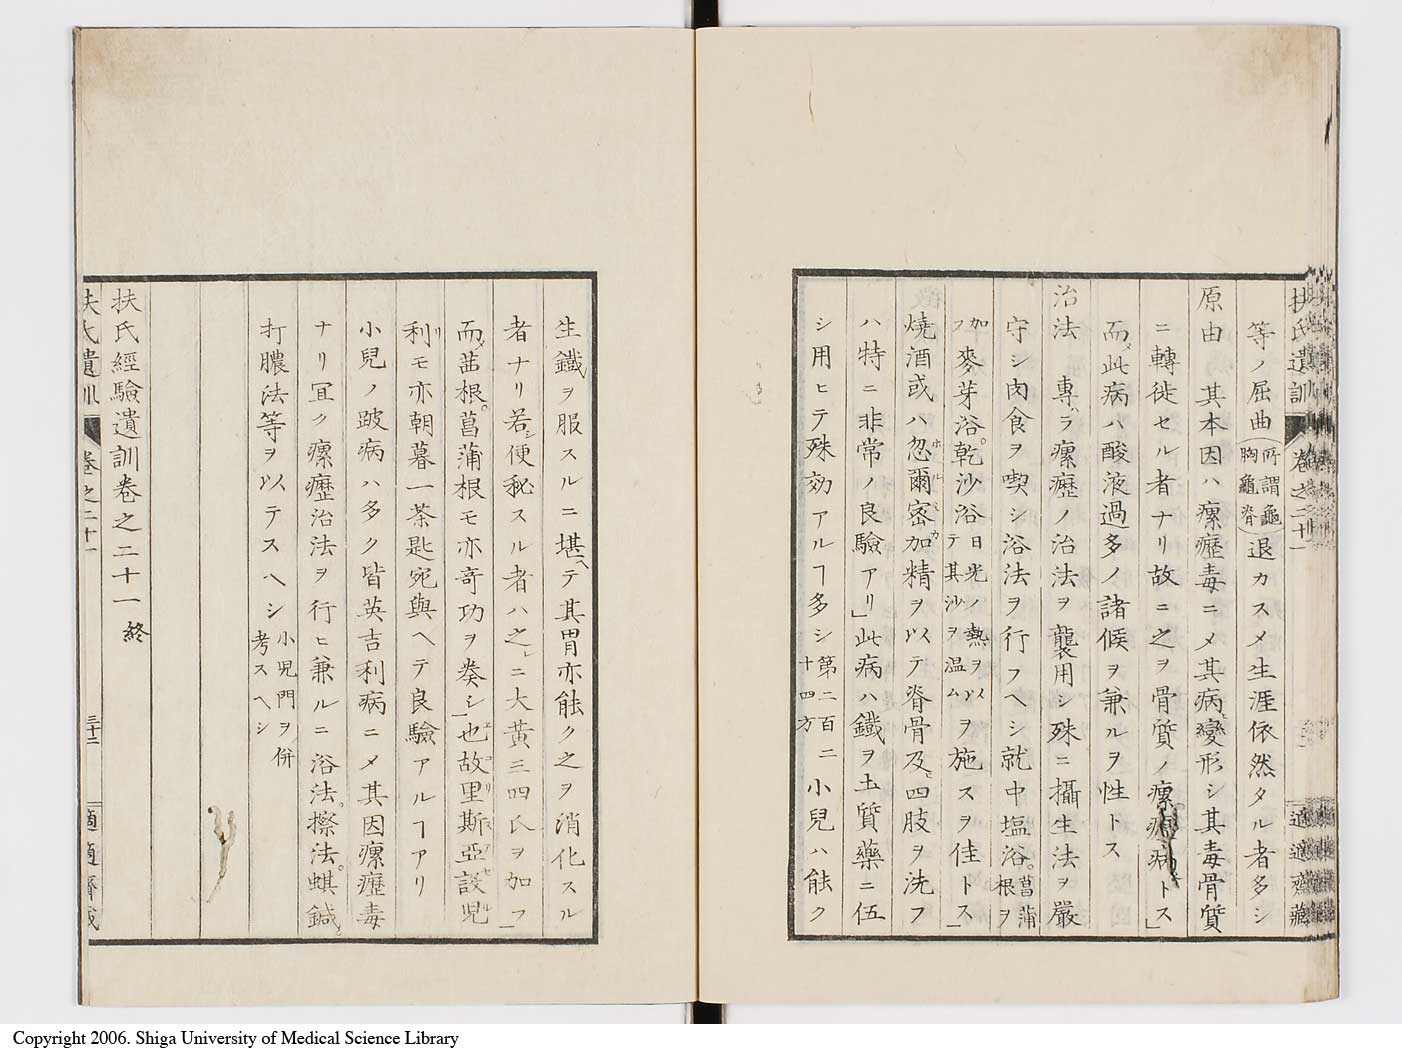 扶氏遺訓 卷之二十一 適適齋藏
等ノ屈曲(所謂龜胸龜脊)退カスメ生涯依然タル者多シ
原由 其本因ハ瘰癧毒ニメ其病變形シ其毒骨質
ニ轉徙セル者ナリ故ニ之ヲ骨質ノ瘰癧病トス」
而此病ハ酸液過多ノ諸候ヲ兼ルヲ性トス
治法 專ラ瘰癧ノ治法ヲ襲用シ殊ニ攝生法ヲ嚴
守シ肉食ヲ喫シ浴法ヲ行フヘシ就中塩浴。菖蒲根ヲ
加フ麥芽浴。乾沙浴日光ノ熱ヲ以テ其沙ヲ温ムヲ施スヲ佳トス」
燒酒或ハ忽爾密加精ヲ以テ脊骨及ヒ四肢ヲ洗フ
ハ特ニ非常ノ良驗アリ」此病ハ鐵ヲ土質藥ニ伍
シ用ヒテ殊効アルヿ多シ第二百二十四方小兒ハ能ク
生鐵ヲ服スルニ堪ヘテ其胃亦能ク之ヲ消化スル
者ナリ若シ便秘スル者ハ之レニ大黃三四氏ヲ加フ」
而メ茜根。菖蒲根モ亦奇功ヲ奏シ」也故里斯亞設兒
利モ亦朝暮一茶匙宛與ヘテ良驗アルヿアリ
小兒ノ跛病ハ多ク皆英吉利病ニメ其因瘰癧毒
ナリ冝ク瘰癧治法ヲ行ヒ兼ルニ浴法。擦法。蜞鍼
打膿法等ヲ以テスヘシ小児門ヲ併考スヘシ
扶氏經驗遺訓卷之二十一終
扶氏遺訓 卷之二十一 三十二 適適齋藏
Copyright 2006. Shiga University of Medical Science Library